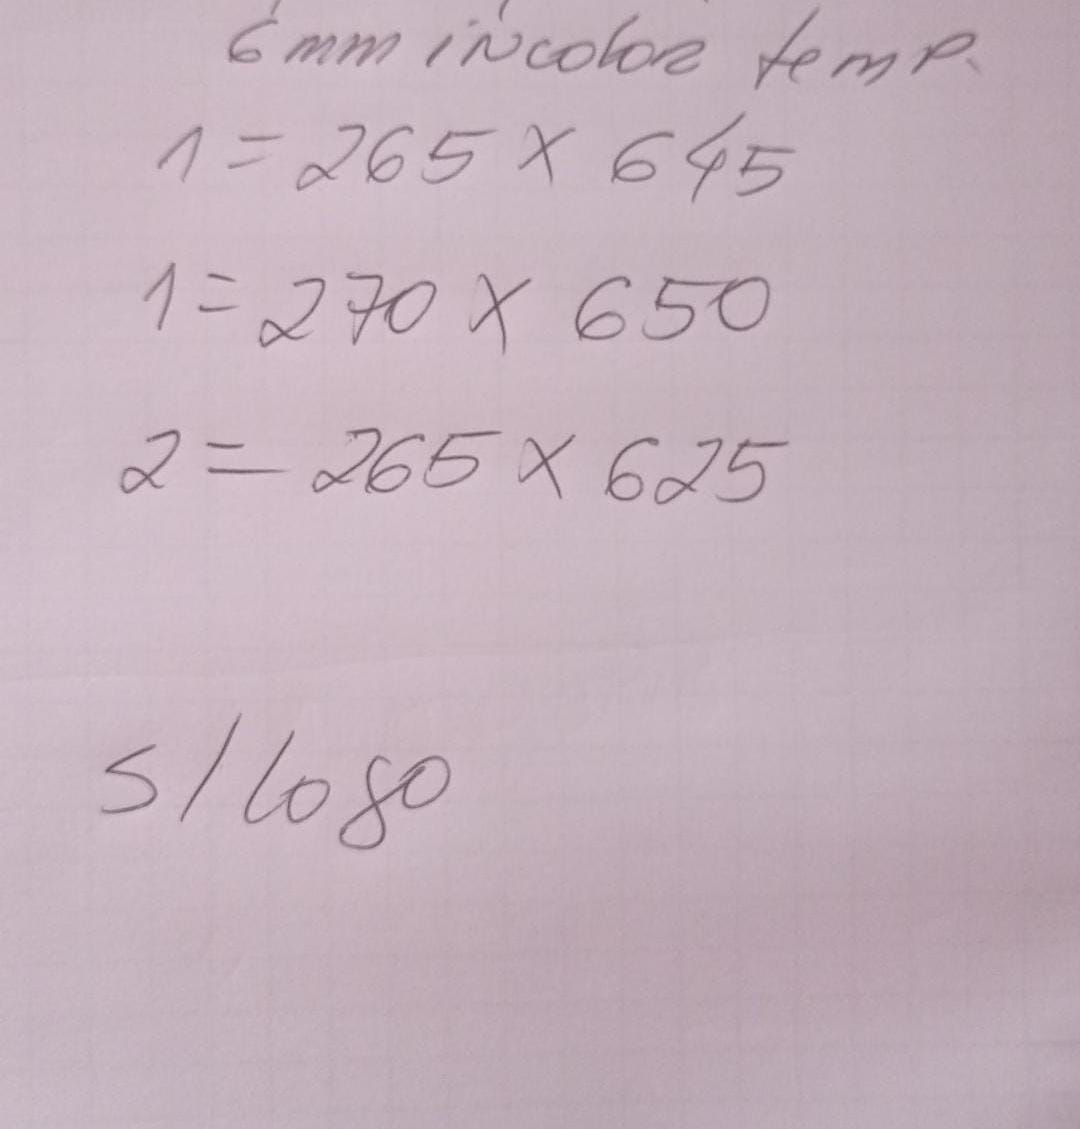 6mm incolor temp.
1= 265 x 645
1= 270 x 650
2= 265 x 625
S/logo